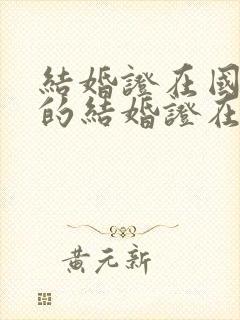 結婚證在國
的結婚證在
黃元新